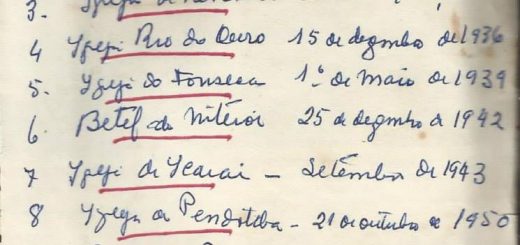 3. Igreja de
4 Igreja Rio do Ouro 15 de dezembro de 1936
5. Igreja do Fonseca 1º de Maio de 1939
6. Betel de Niterói 25 de dezembro de 1942
7 Igreja de Icaraí – Setembro de 1943
8 Igreja de Pendotiba – 21 de outubro de 1950